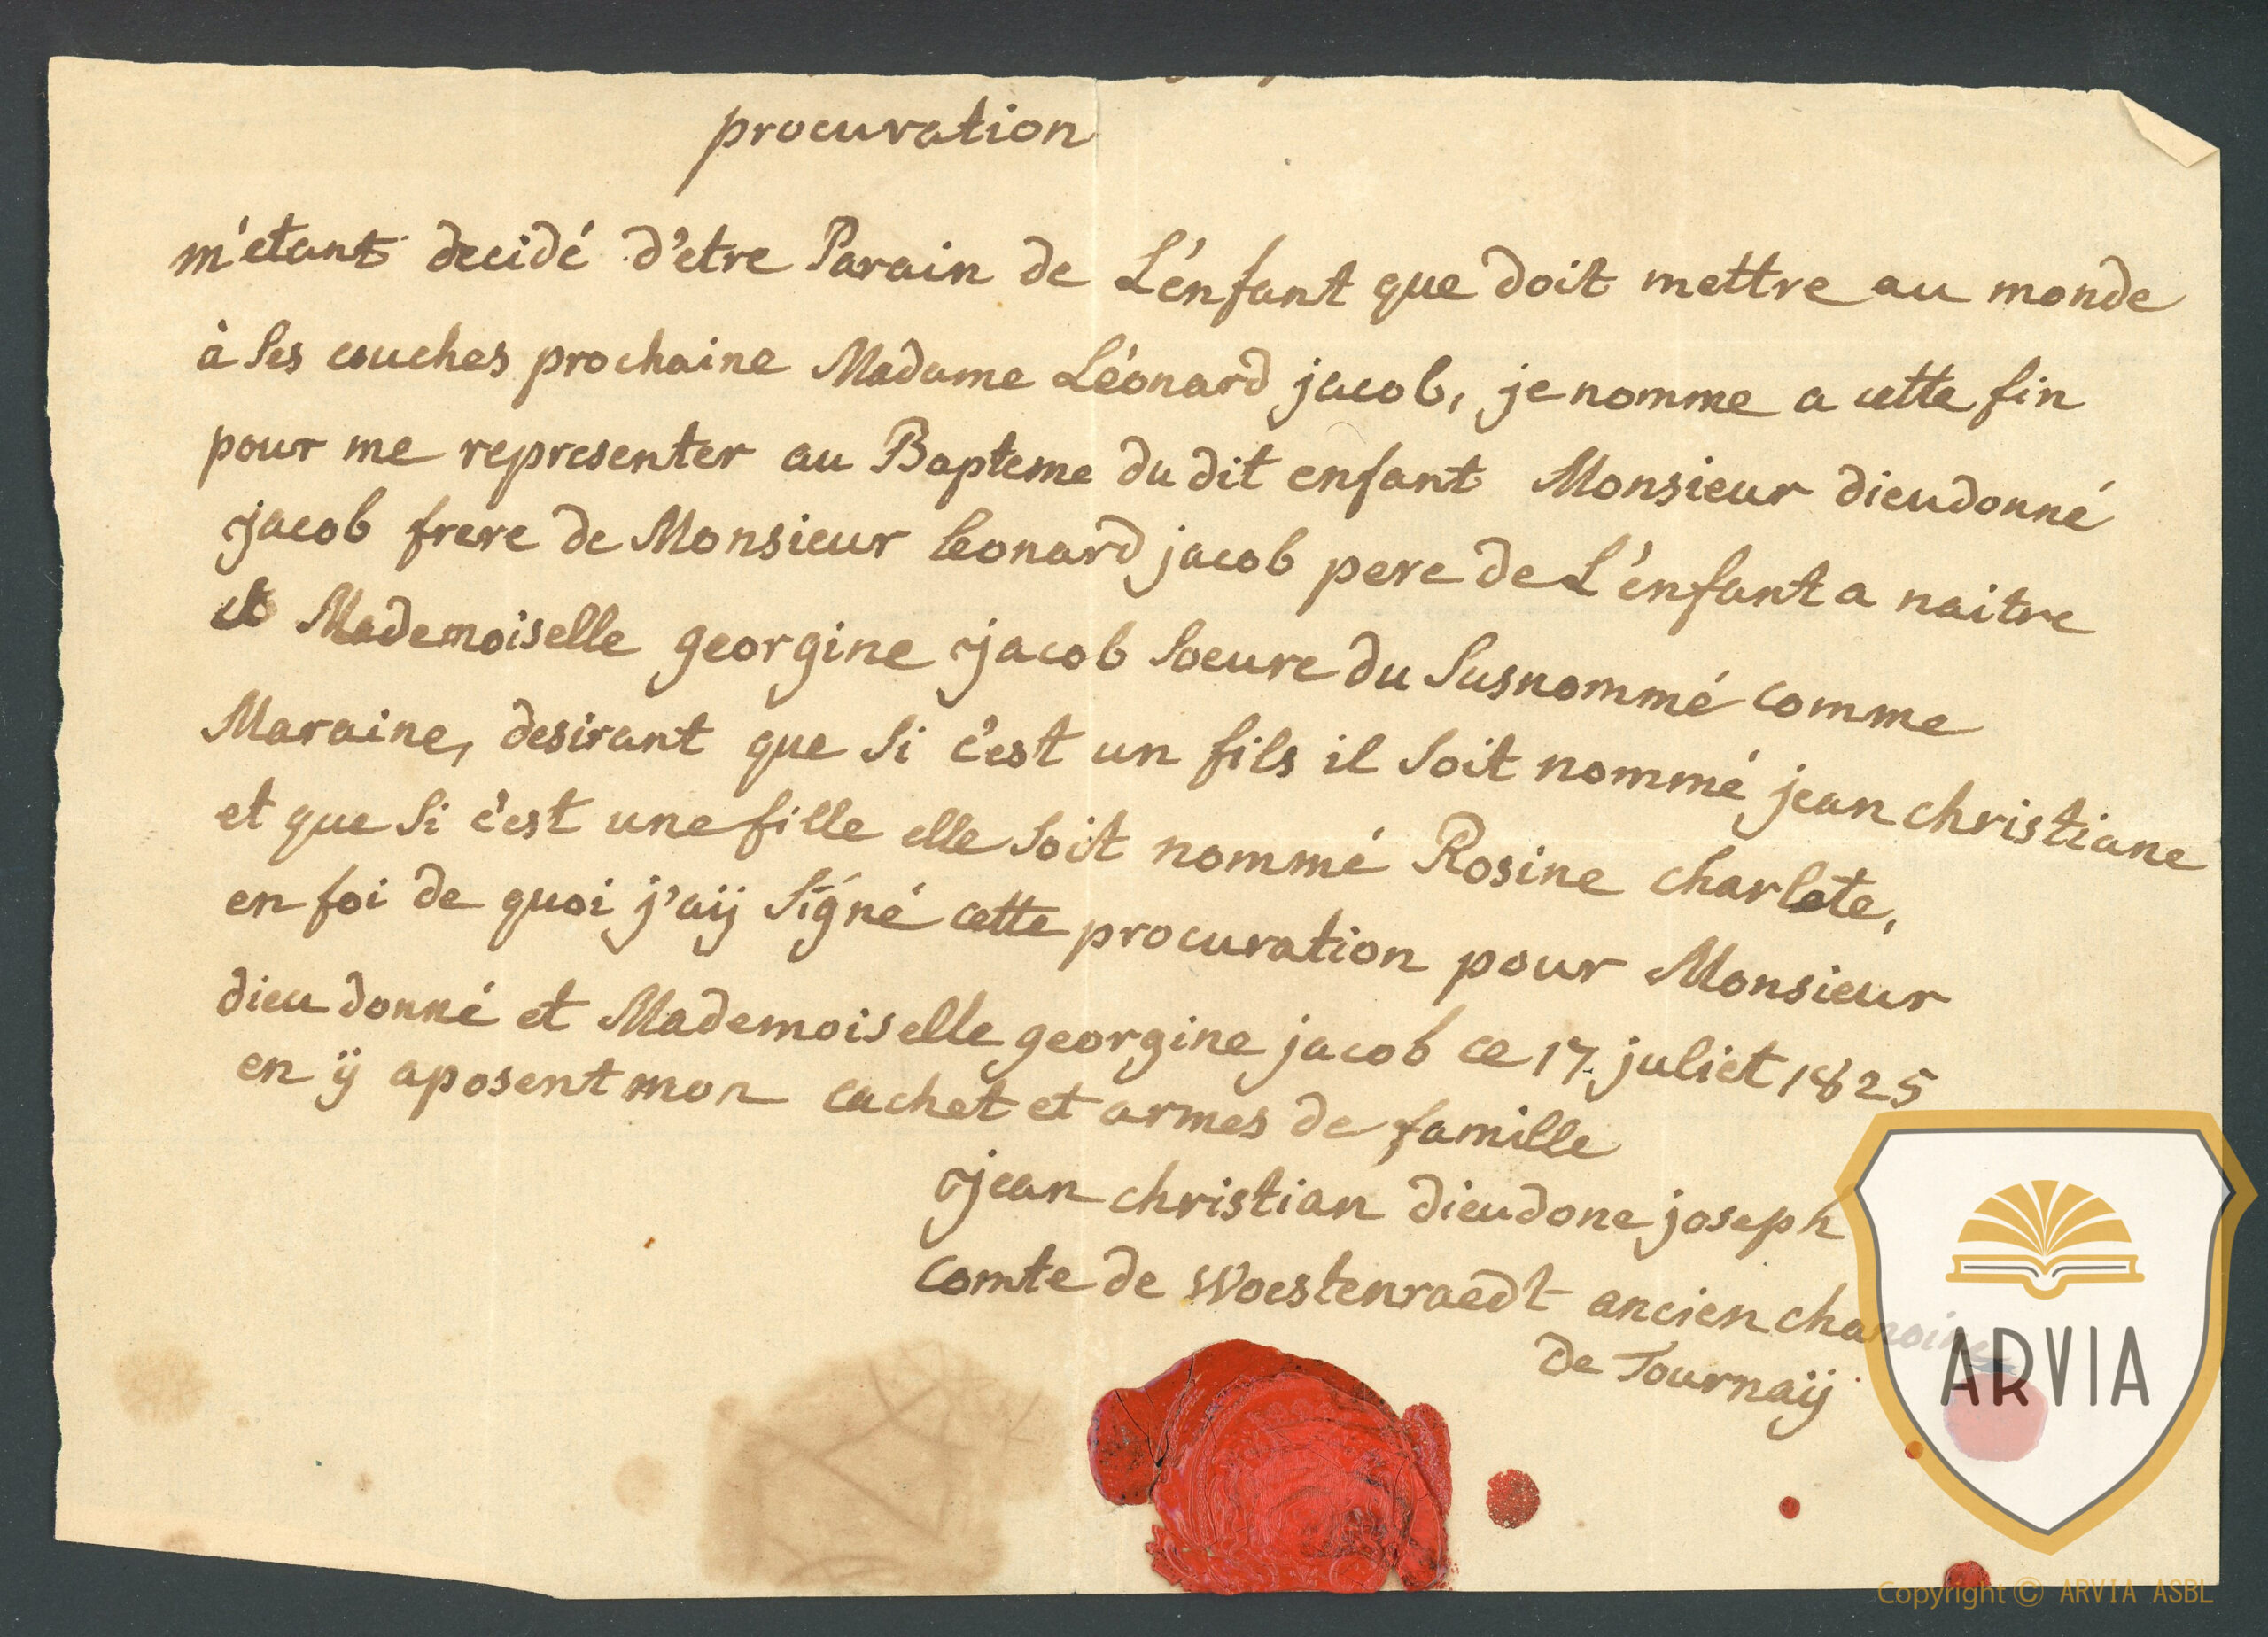 procuration
m'etant decidé d'etre Parain de L'énfant que doit mettre au monde
à ses couches prochaine Madame Léonard jacob, je nomme a cette fin
pour me representer au Bapteme du dit enfant Monsieur dieudonné
jacob frere de Monsieur leonard jacob pere de L'énfant a naitre
et Mademoiselle georgine jacob soeure du susnommé comme
Maraine, desirant que si c'est un fils il soit nommé jean christiane
et que si c'est une fille elle soit nommé Rosine charlote,
en foi de quoi j'aÿ signé cette procuration pour Monsieur
dieu donné et Mademoiselle georgine jacob ce 17 juliet 1825
en ÿ aposent mon cachet et armes de famille
jean christian dieudone joseph
comte de Woestenraedt ancien chanoine
de Tournaÿ
ARVIA
Copyright © ARVIA ASBL